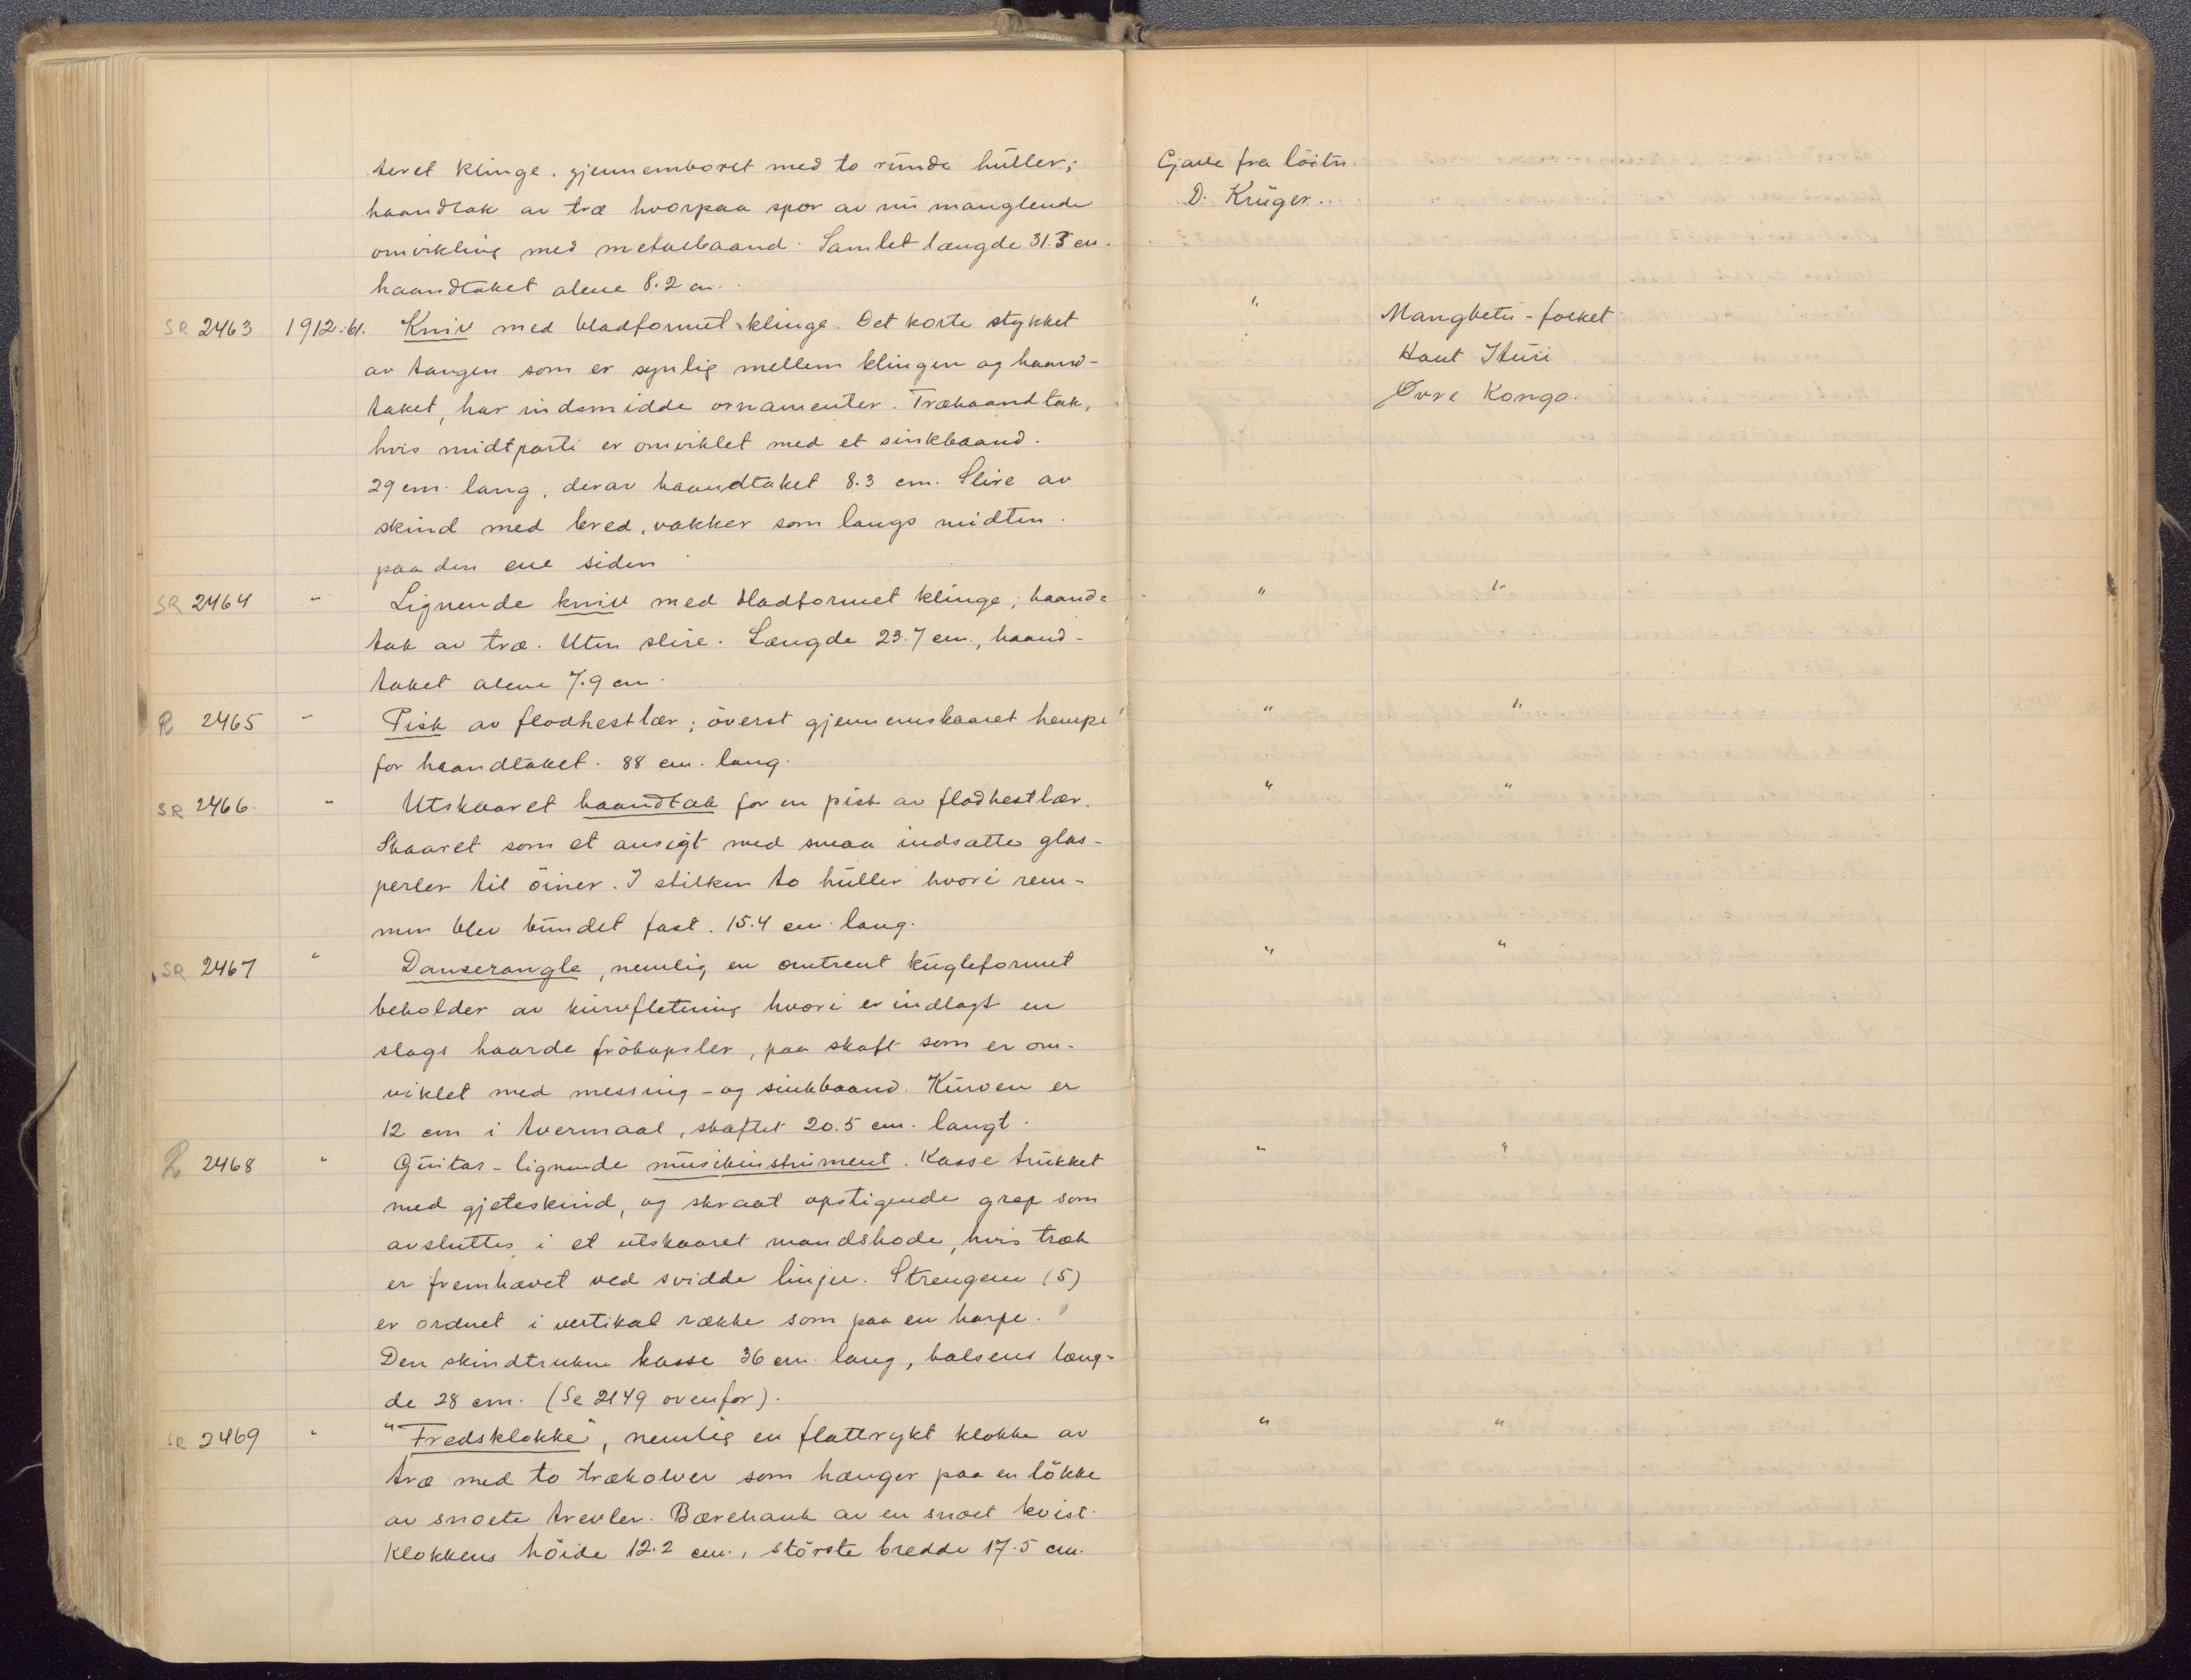 teret klinge, gjennemboret med to runde huller;
haandtak av træ hvorpaa spor av nu manglende
omvikling med metalbaand. Samlet længde 31.5 cm.
haandtaket alene 8.2 cm.
SR 2463 1912:61. Kniv med bladformet klinge. Det korte stykket
av tangen som er synlig mellem klingen og haand-
taket, har indsmidde ornamenter. Træhaandtak,
hvis midtparti er omviklet med et sinkbaand.
29 cm. lang, derav haandtaket 8.3 cm. Slire av
skind med bred, vakker som langs midten
paa den ene siden
SR 2464 " Lignende kniv med bladformet klinge; haand=
tak av træ. Uten slire. Længde 23.7 cm., haand-
taket alene 7.9 cm.
R 2465 " Pisk av flodhestlær; överst gjennemskaaret hempe
for haandtaket. 88 cm. lang.
SR 2466. " Utskaaret haandtak for en pisk av flodhestlær.
Skaaret som et ansigt med smaa indsatte glas-
perler til öiner. I stilken to huller hvori rem-
men blev bundet fast. 15.4 cm. lang.
SR 2467 " Danserangle, nemlig en omtrent kugleformet
beholder av kurvfletning hvori er indlagt en
slags haarde frökapsler, paa skaft som er om-
viklet med messing- og sinkbaand. Kurven er
12 cm i tvermaal, skaftet 20.5 cm. langt.
R 2468 " Guitar-lignende musikinstrument. Kasse trukket
med gjeteskind, og skraat opstigende grep som
avsluttes i et utskaaret mandshode, hvis træk
er fremhævet ved svidde linjer. Strengene (5)
er ordnet i vertikal række som paa en harpe.
Den skindtrukne kasse 36 cm. lang, halsens læng-
de 28 cm. (Se 2149 ovenfor).
SR 2469 " "Fredsklokke", nemlig en flattrykt klokke av
træ med to trækolver som hænger paa en lökke
av snoete trevler. Bærehank av en snoet kvist.
Klokkens höide 12.2 cm., störste bredde 17.5 cm.
Gave fra löitn.
D. Krüger.
" Mangbetu-folket
Haut Ituri
Övre Kongo.
" "
" "
" "
" "
" "
" "